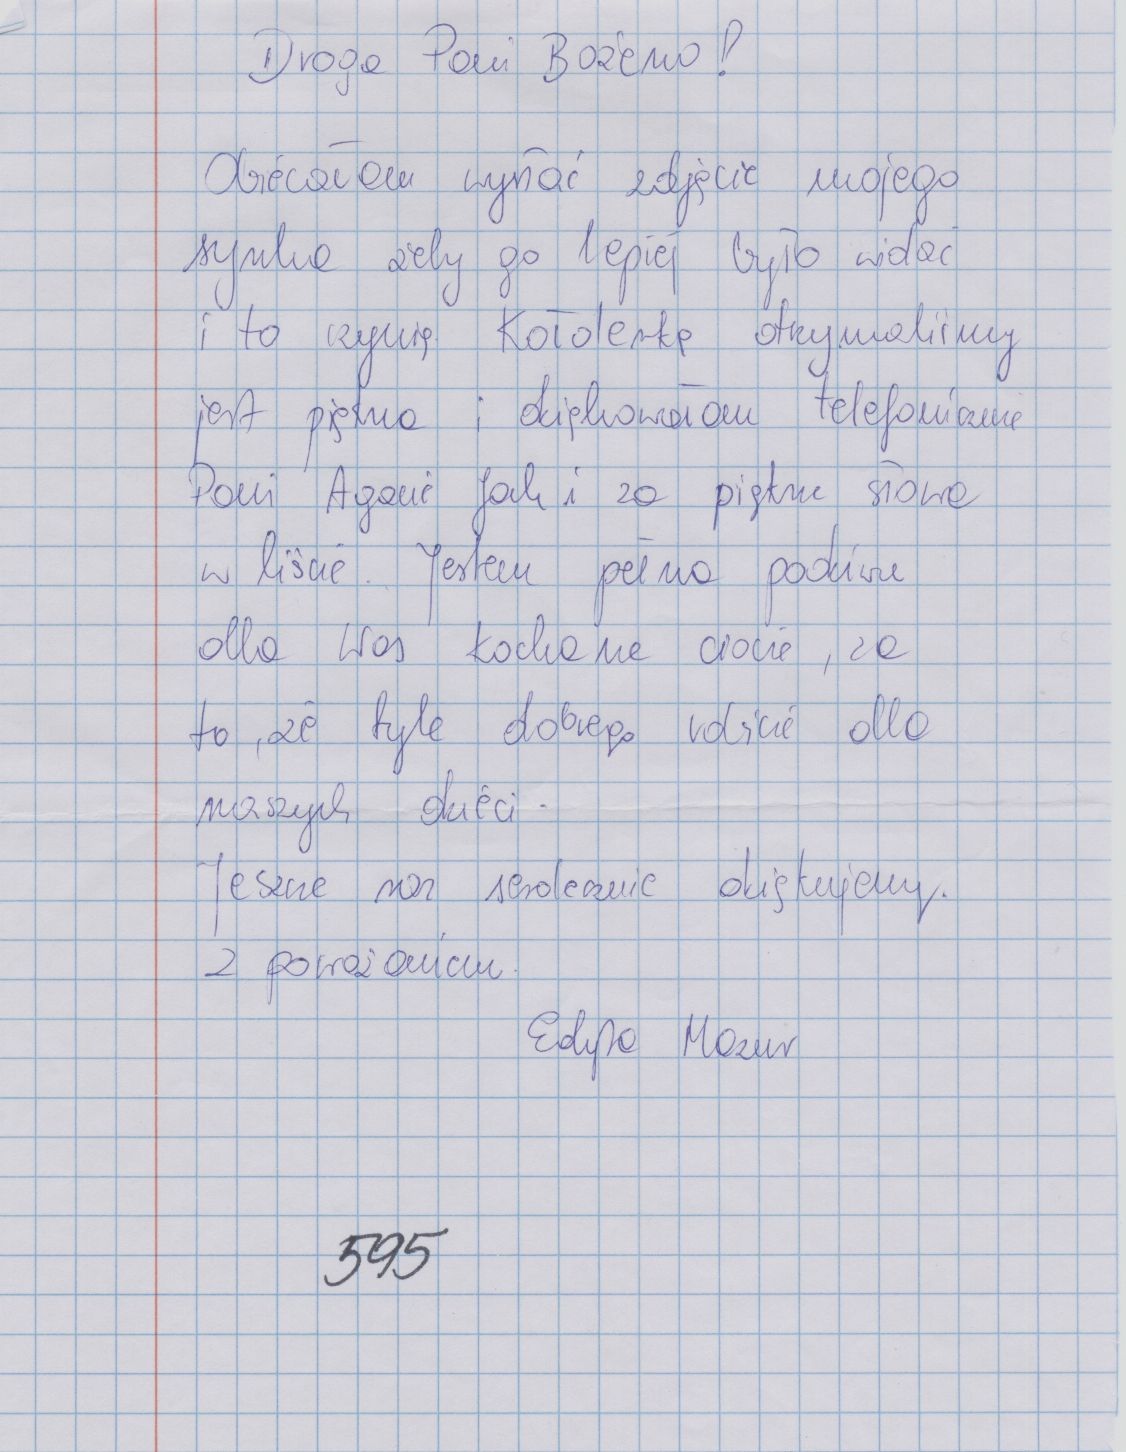 Droga Pani Bożeno!
Obiecałam wysłać zdjęcie mojego
synka żeby go lepiej było widać
i to czynię. Kołderkę otrzymaliśmy
jest piękna i dziękowałam telefonicznie
Pani Agacie jak i za piękne słowa
w liście. Jestem pełna podziwu
dla Was kochane ciocie, za
to, że tyle dobrego robicie dla
naszych dzieci.
Jeszcze raz serdecznie dziękujemy.
Z poważaniem.
Edyta Mazur
595